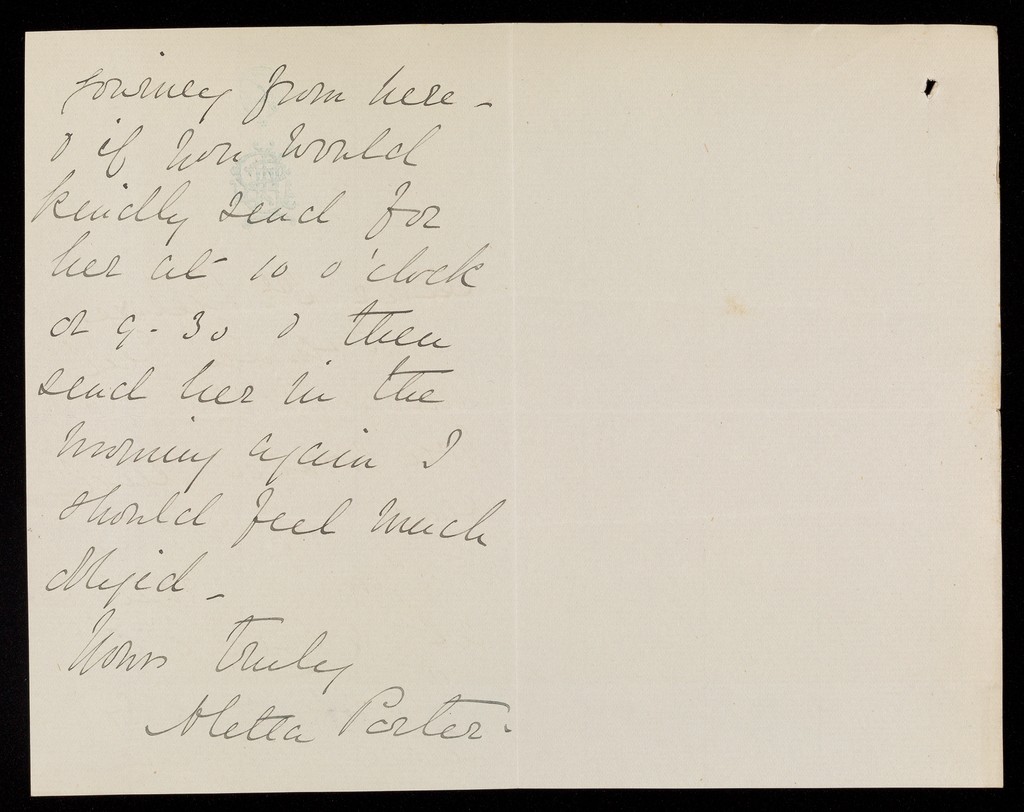 journey from here -
& if you would
kindly send for
her at 10 o'clock
or 9-30 & then
send her in the
morning again I
should feel much
obliged -
Yours truly
Aletta Porter.